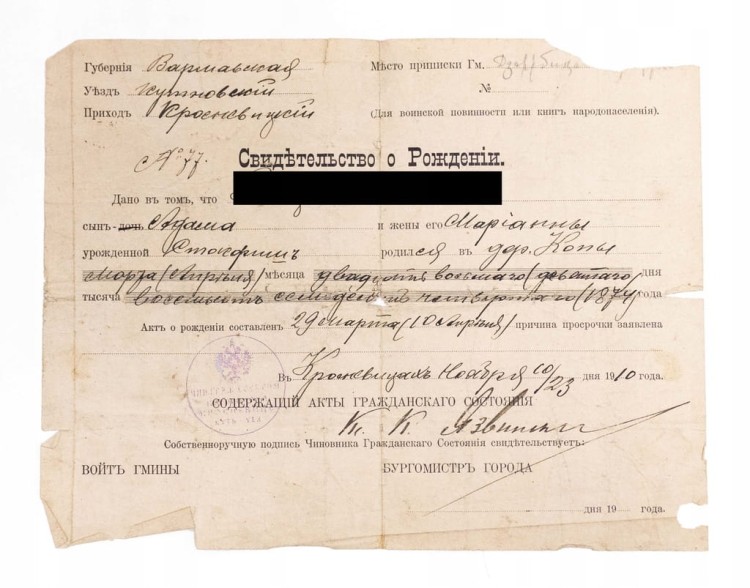 Губернія Варшавская Мѣсто приписки Гм.
Уѣздъ Кутновскій №
Приходъ Кросневицкій (Для воинской повинности или книгъ народонаселенія).
№ 77.
Свидѣтельство о Рожденіи.
Дано въ томъ, что
сынъ-дочь Адама и жены его Маріанны
урожденной Стокфишъ родился въ дер. Копы
Марта (Апрѣля) мѣсяца двадцать восьмаго (девятаго) дня
тысяча восемьсотъ семьдесятъ четвертаго (1874) года
Актъ о рожденіи составленъ 29 марта (10 Апрѣля) причина просрочки заявлена
Въ Кросневицахъ Ноября 10/23 дня 1910 года.
СОДЕРЖАЩІЙ АКТЫ ГРАЖДАНСКАГО СОСТОЯНІЯ
Кн. К.
Собственноручную подпись Чиновника Гражданскаго Состоянія свидѣтельствуетъ:
ВОЙТЪ ГМИНЫ БУРГОМИСТРЪ ГОРОДА
дня 19 года.